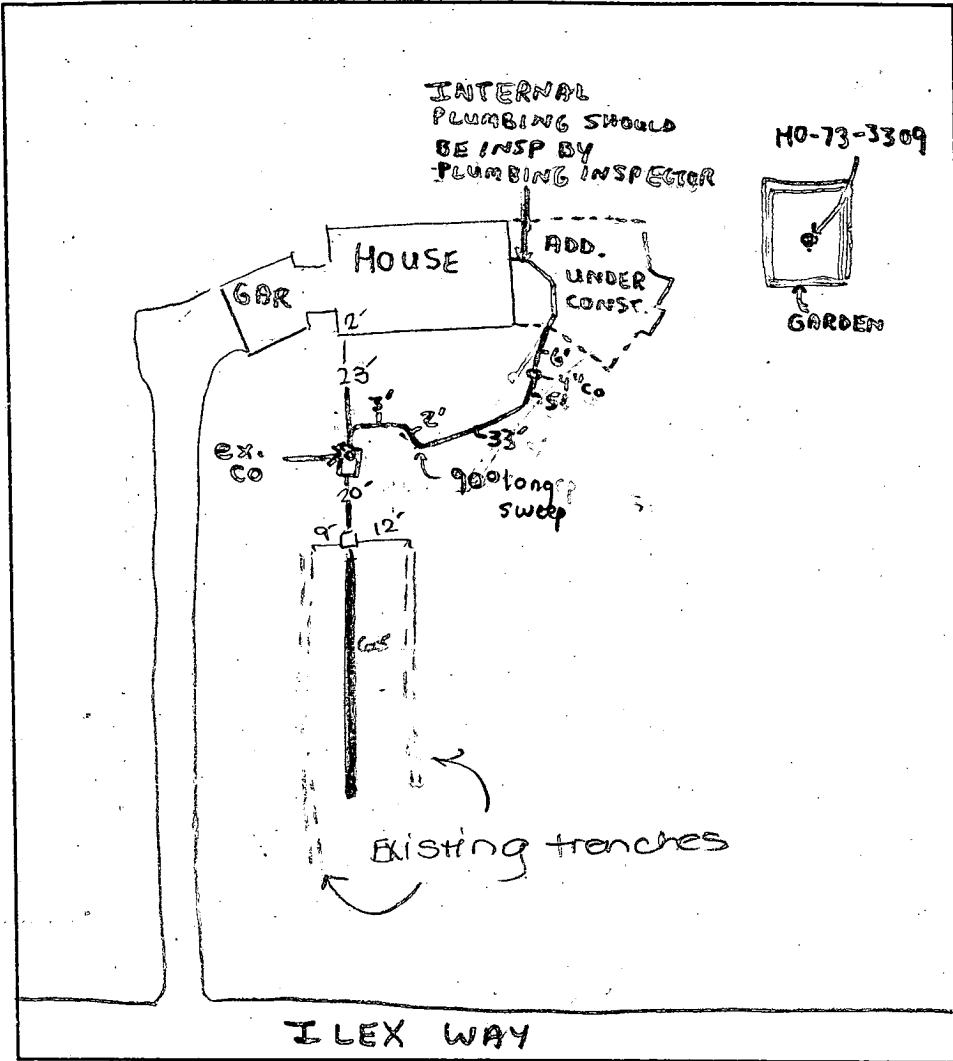 INTERNAL
PLUMBING SHOULD
BE INSP BY
PLUMBING INSPECTOR
HO-73-3309
HOUSE
ADD.
UNDER
CONST.
GAR
GARDEN
2'
23'
6'
4" CO
5'
3'
2'
33'
EX.
CO
90° long
sweep
20'
9'
12'
Existing trenches
ILEX WAY